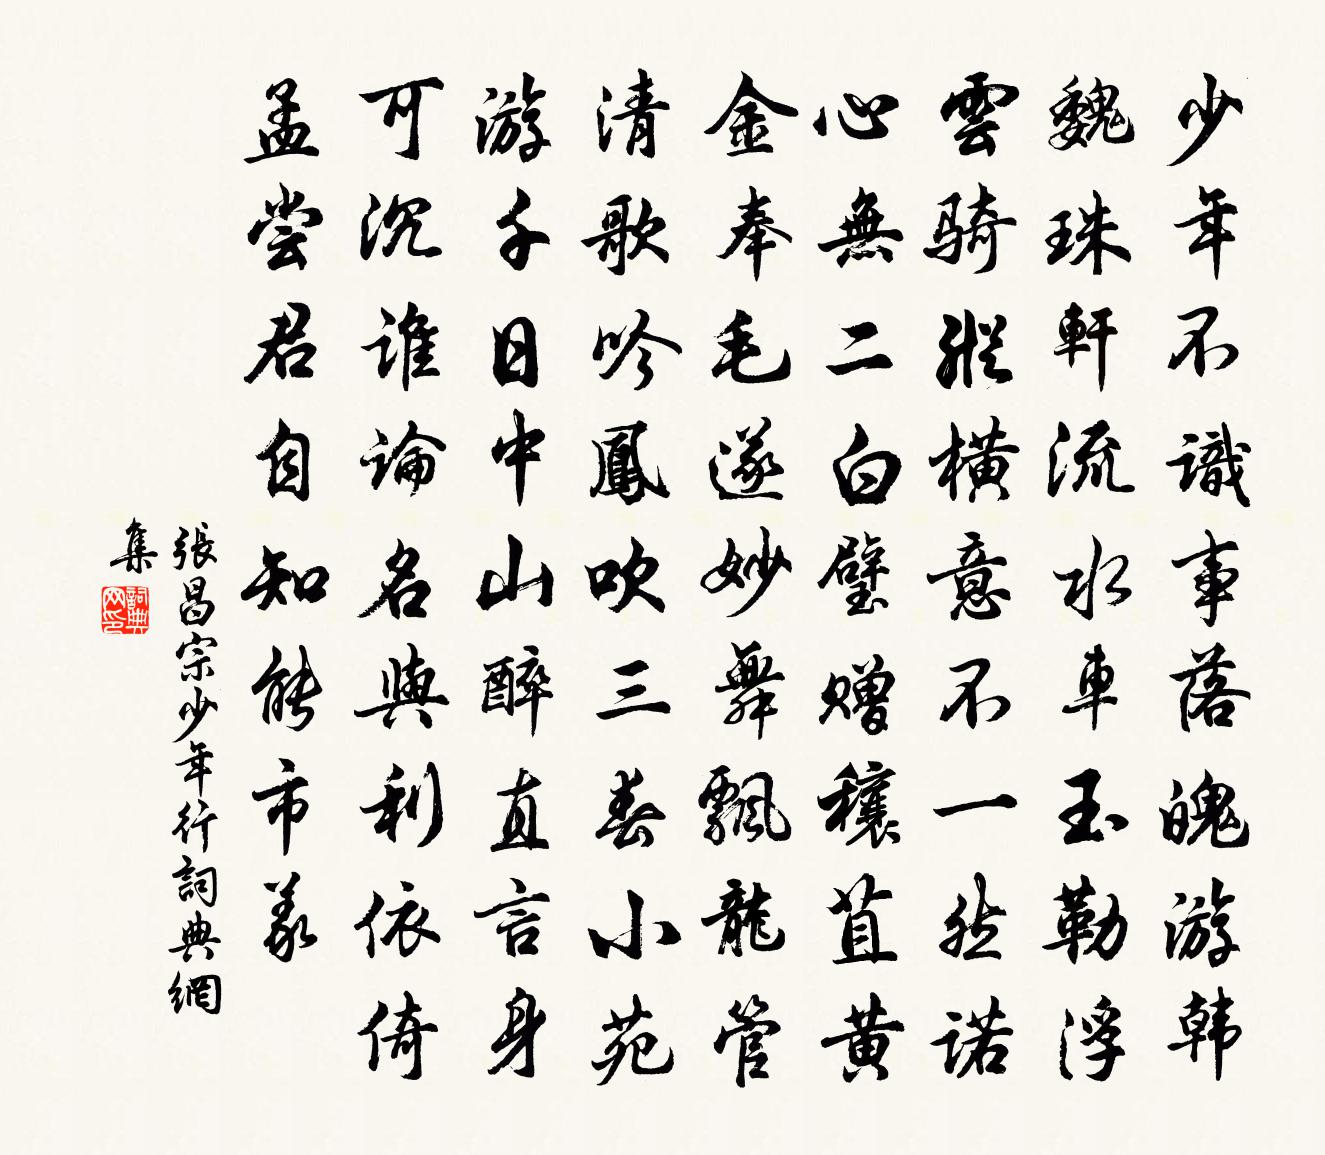 少年不識事落魄游韩
魏珠軒流水車玉勒浮
雲骑縱橫意不一然诺
心無二白璧赠穰苴黄
金奉毛遂妙舞飄龍管
清歌吟鳳吹三春小苑
游千日中山醉直言身
可沉谁論名與利依倚
孟尝君自知能市義
張昌宗少年行詞典網
集
詞典
网印